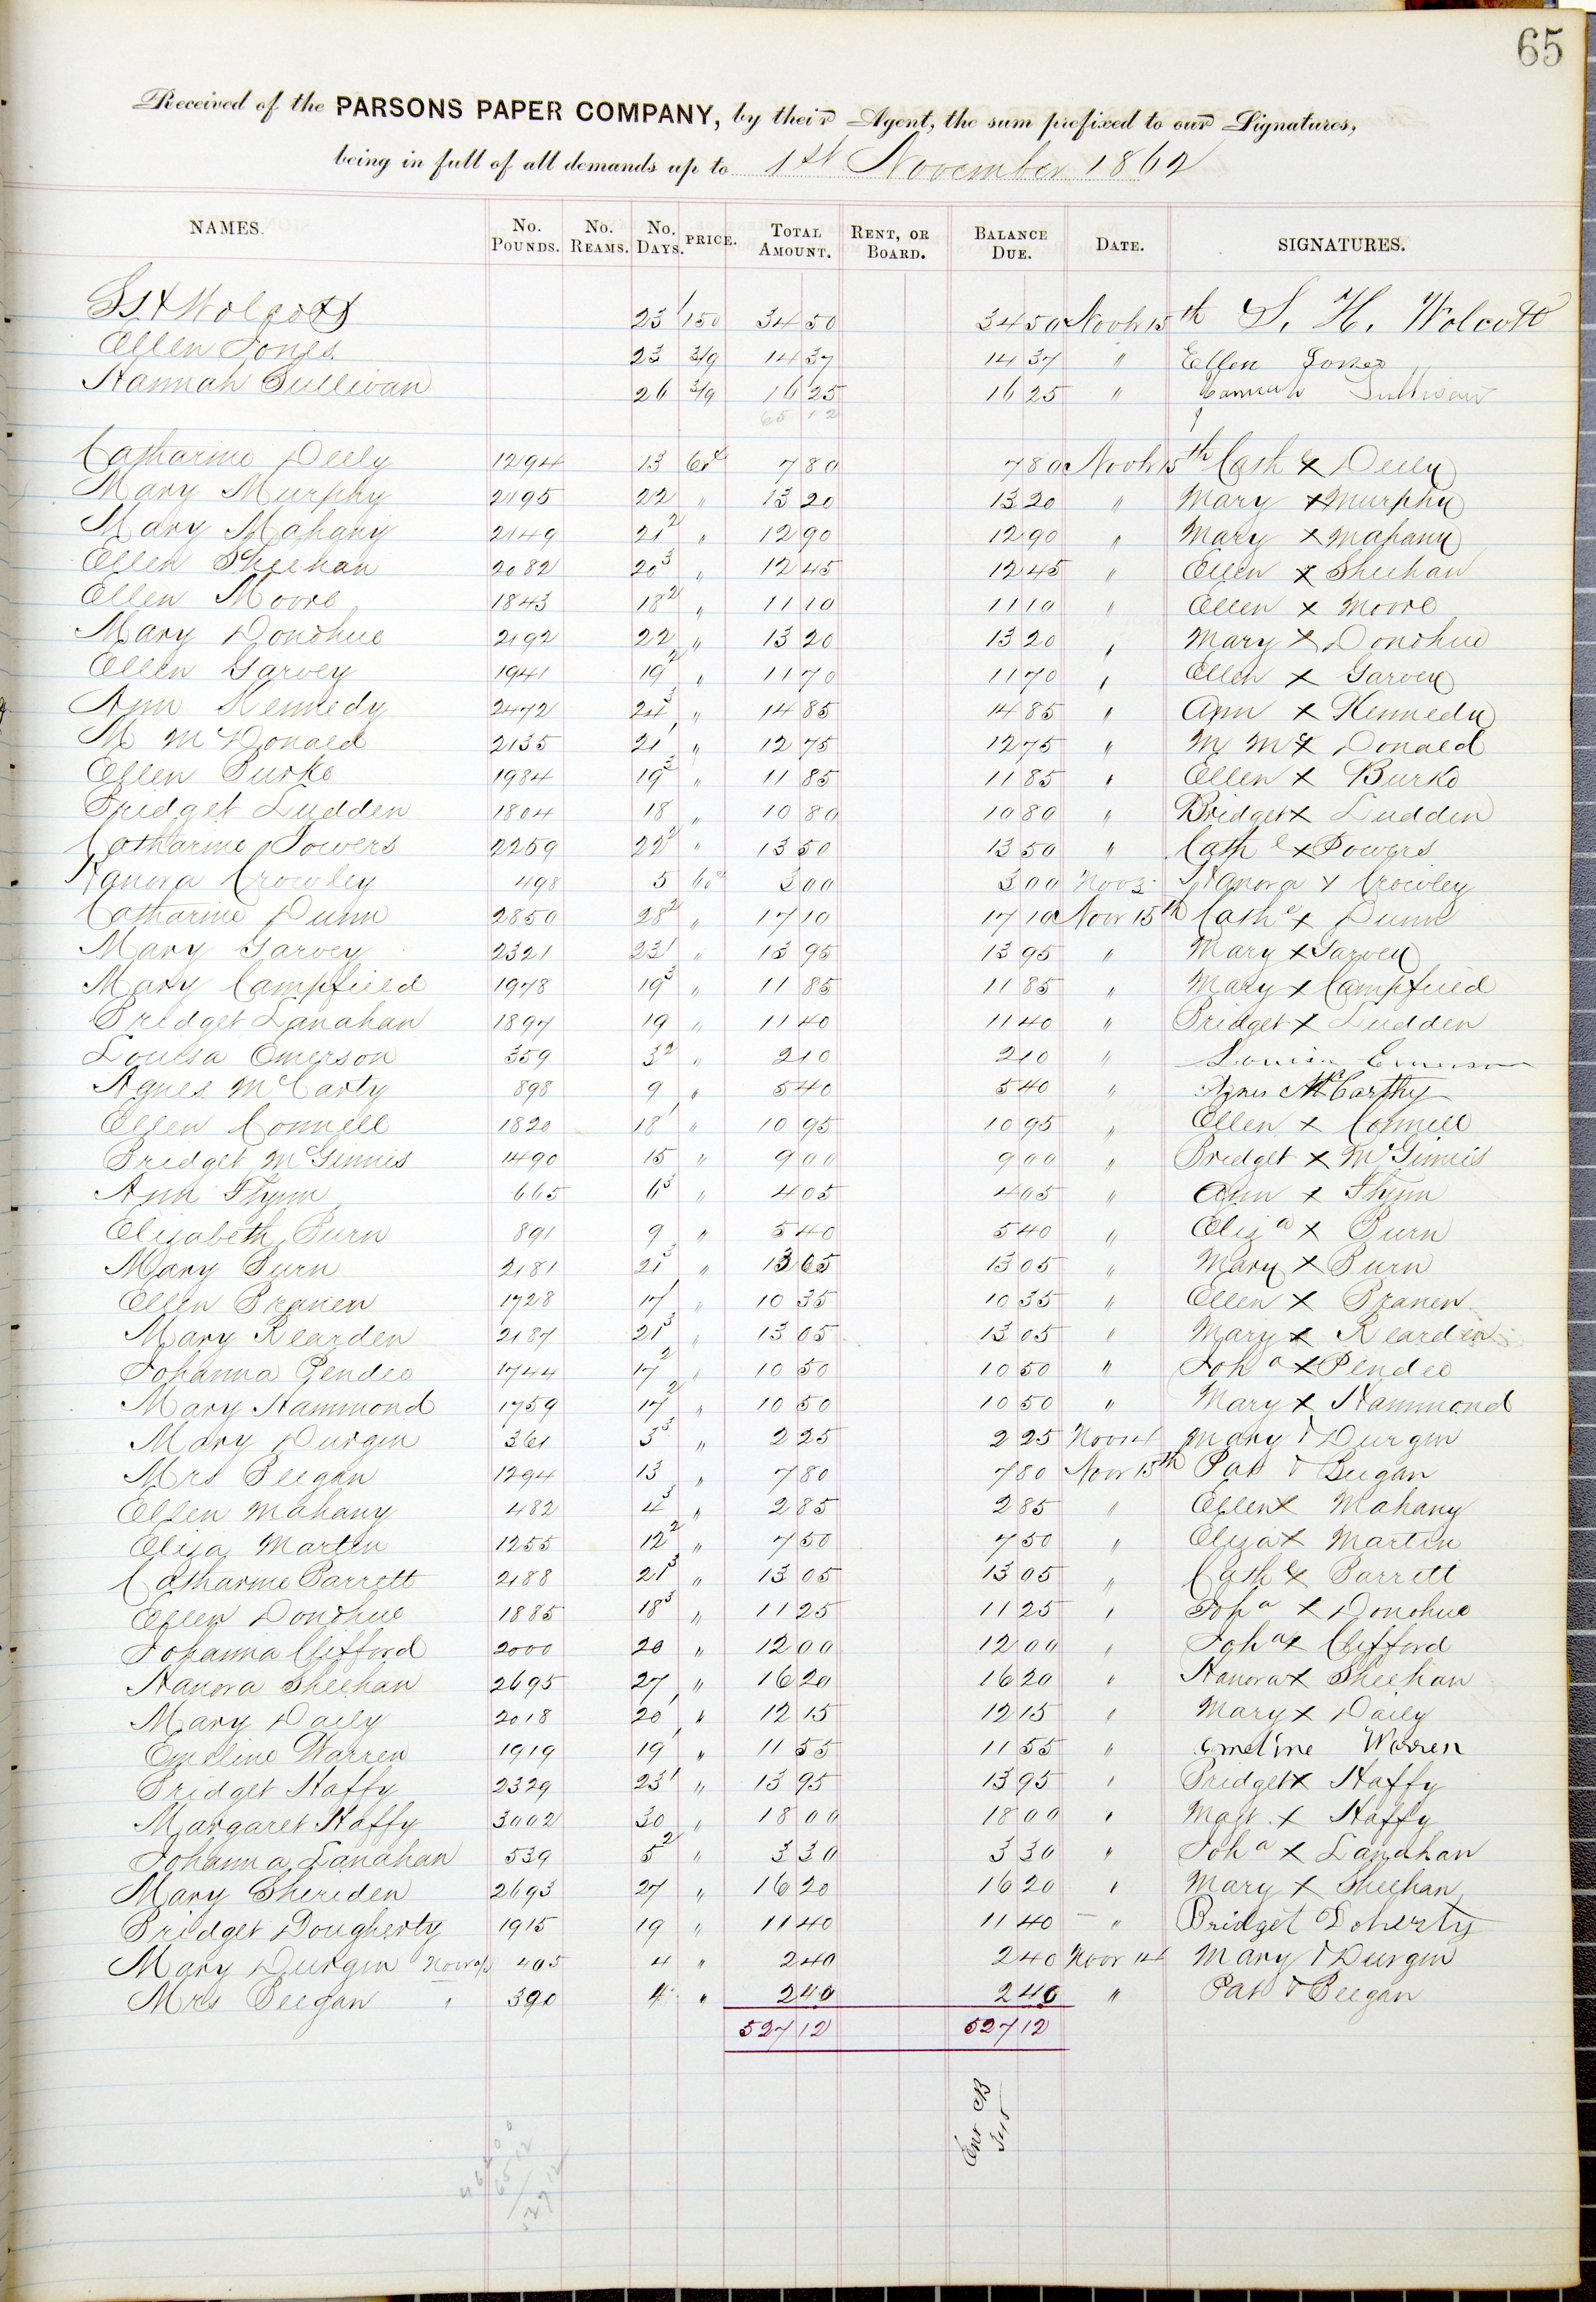 65
Received of the PARSONS PAPER COMPANY, by their Agent, the sum prefixed to our Signatures,
being in full of all demands up to 1st November 1862
NAMES. No. POUNDS. No. REAMS. No. DAYS. PRICE. TOTAL AMOUNT. RENT, OR BOARD. BALANCE DUE. DATE. SIGNATURES.
S H Wolcott 23 1 150 34 50 34 50 Novbr 15th S. H. Wolcott
Ellen Jones 23 3/9 14 37 14 37 " Ellen Jones
Hannah Sullivan 26 3/9 16 25 16 25 " Hannah Sullivan
65 12
Catharine Deely 1294 13 60c 7 80 7 80 Novbr 15th Cathe x Deely
Mary Murphy 2195 22 " 13 20 13 20 " Mary x Murphy
Mary Mahany 2149 21 2 " 12 90 12 90 " Mary x Mahany
Ellen Sheehan 2082 20 3 " 12 45 12 45 " Ellen x Sheehan
Ellen Moore 1843 18 2 " 11 10 11 10 " Ellen x Moore
Mary Donohue 2192 22 " 13 20 13 20 " Mary x Donohue
Ellen Garvey 1941 19 2 " 11 70 11 70 " Ellen x Garvey
Ann Kennedy 2472 24 3 " 14 85 14 85 " Ann x Kennedy
M McDonald 2135 21 1 " 12 75 12 75 " M Mc x Donald
Ellen Burke 1984 19 3 " 11 85 11 85 " Ellen x Burke
Bridget Ludden 1804 18 " 10 80 10 80 " Bridget x Ludden
Catharine Powers 2259 22 2 " 13 50 13 50 " Cath e x Powers
Hanora Crowley 498 5 60c 3 00 3 00 Nov 3 Hanora x Crowley
Catharine Dunn 2850 28 2 " 17 10 17 10 Novr 15th Cathe x Dunn
Mary Garvey 2321 23 1 " 13 95 13 95 " Mary x Garvey
Mary Campfield 1978 19 3 " 11 85 11 85 " Mary x Campfield
Bridget Lanahan 1897 19 " 11 40 11 40 " Bridget x Ludden
Louisa Emerson 359 3 2 " 2 10 2 10 " Louisa Emerson
Agnes McCarty 898 9 " 5 40 5 40 " Agnes McCarthy
Ellen Connell 1820 18 1 " 10 95 10 95 " Ellen x Connell
Bridget McGinnis 1490 15 " 9 00 9 00 " Bridget x McGinnis
Ann Flynn 665 6 3 " 4 05 4 05 " Ann x Flynn
Elizabeth Burn 891 9 " 5 40 5 40 " Eliza x Burn
Mary Burn 2181 21 3 " 13 05 13 05 " Mary x Burn
Ellen Branen 1728 17 1 " 10 35 10 35 " Ellen x Branen
Mary Rearden 2187 21 3 " 13 05 13 05 " Mary x Rearden
Johanna Pendeo 1744 17 2 " 10 50 10 50 " Joha x Pendeo
Mary Hammond 1759 17 2 " 10 50 10 50 " Mary x Hammond
Mary Durgin 361 3 3 " 2 25 2 25 Novr 4 Mary x Durgin
Mrs Beegan 1294 13 " 7 80 7 80 Novr 15th Pat x Beegan
Ellen Mahany 482 4 3 " 2 85 2 85 " Ellen x Mahany
Eliza Martin 1255 12 2 " 7 50 7 50 " Eliza x Martin
Catharine Barrett 2188 21 3 " 13 05 13 05 " Cathe x Barrett
Ellen Donohue 1885 18 3 " 11 25 11 25 " Joha x Donohue
Johanna Clifford 2000 20 " 12 00 12 00 " Joha x Clifford
Hanora Sheehan 2695 27 " 16 20 16 20 " Hanora x Sheehan
Mary Daily 2018 20 1 " 12 15 12 15 " Mary x Daily
Emeline Warren 1919 19 1 " 11 55 11 55 " Emeline Warren
Bridget Haffy 2329 23 1 " 13 95 13 95 " Bridget x Haffy
Margaret Haffy 3002 30 " 18 00 18 00 " Magt. x Haffy
Johanna Lanahan 539 5 2 " 3 30 3 30 " Joha x Lanahan
Mary Sheriden 2693 27 " 16 20 16 20 " Mary x Sheehan
Bridget Dougherty 1915 19 " 11 40 11 40 " Bridget Doherty
Mary Durgin 405 4 " 2 40 2 40 Novr 14 Mary x Durgin
Mrs Beegan " 390 4 " 2 40 2 40 " Pat x Beegan
527 12 527 12
Ent CB
345
462 00
65 12
527 12